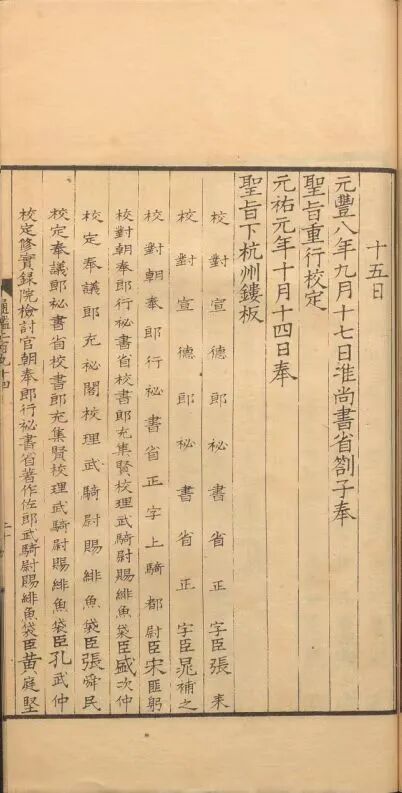 十五日
元豐八年九月十七日准尚書省劄子奉
聖旨重行校定
元祐元年十月十四日奉
聖旨下杭州鏤板
校對宣德郎秘書省正字臣張耒
校對宣德郎秘書省正字臣晁補之
校對朝奉郎行秘書省正字上騎都尉臣宋匪躬
校對朝奉郎行秘書省校書郎充集賢校理武騎尉賜緋魚袋臣盛次仲
校定奉議郎充秘閣校理武騎尉賜緋魚袋臣張舜民
校定奉議郎秘書省校書郎充集賢校理武騎尉賜緋魚袋臣孔武仲
校定修實錄院檢討官朝奉郎行秘書省著作佐郎武騎尉賜緋魚袋臣黃庭堅
通鑑二百九十四